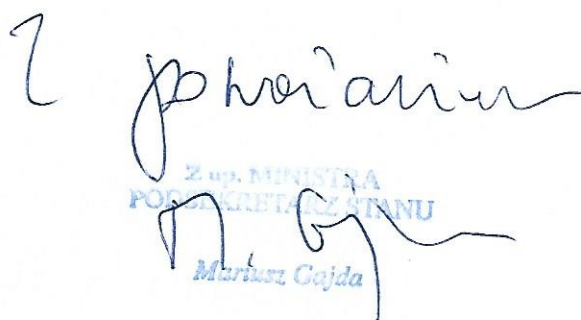 Z poważaniem
Z up. MINISTRA
PODSEKRETARZ STANU
M. Gajda
Mariusz Gajda